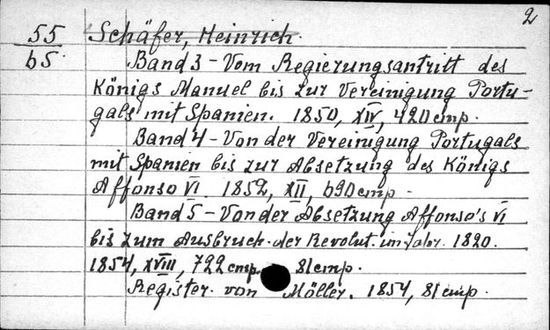 2
55 Schäfer, Heinrich
b5 Band 3 - Vom Regierungsantritt des
Königs Manuel bis zur Vereinigung Portu-
gals mit Spanien. 1850, XIV, 420 стр.
Band 4 - Von der Vereinigung Portugals
mit Spanien bis zur Absetzung des Königs
Affonso VI 1852, XII, 690 стр.
Band 5 - Von der Absetzung Affonso's VI
bis zum Ausbruch der Revolut. im Jahr. 1820.
1854, XVIII, 722 стр. 81 стр.
Register von Möller. 1854, 81 стр.